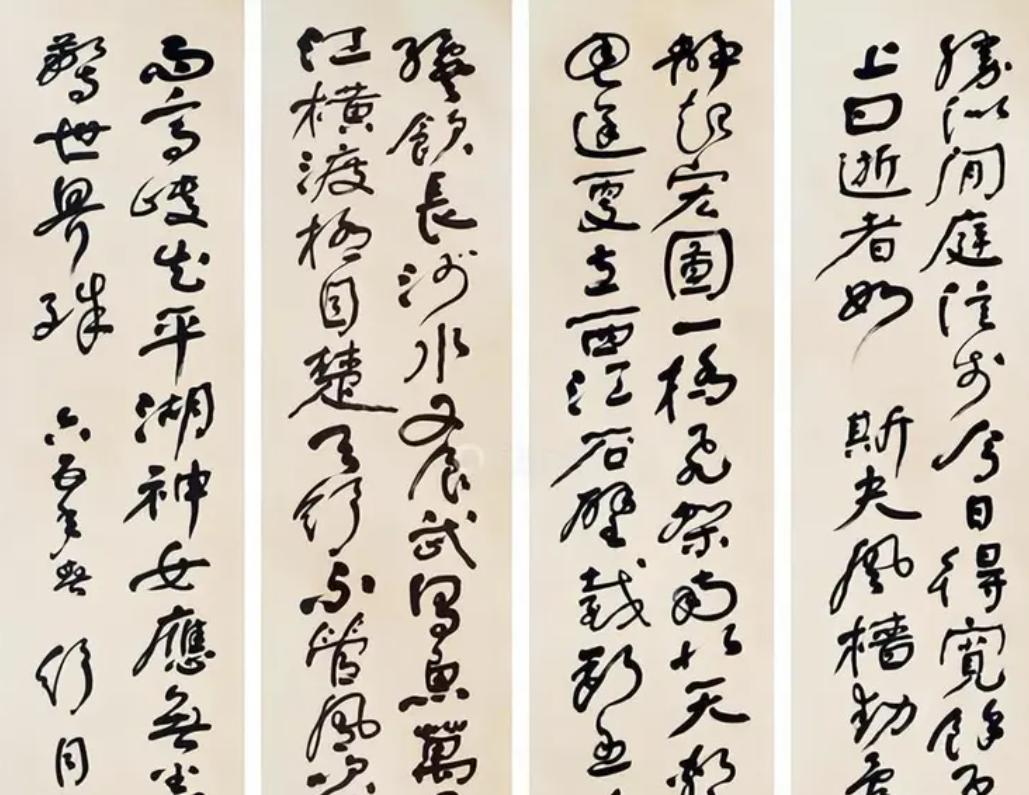 勝似閒庭信步今日得寬餘
上曰逝者如斯夫風檣動
靜起宏圖一橋飛架南北天塹
通途更立西江石壁截斷巫
纔飲長沙水又食武昌魚萬
江橫渡極目楚天舒不管風吹
雨高峽出平湖神女應無
驚世界殊